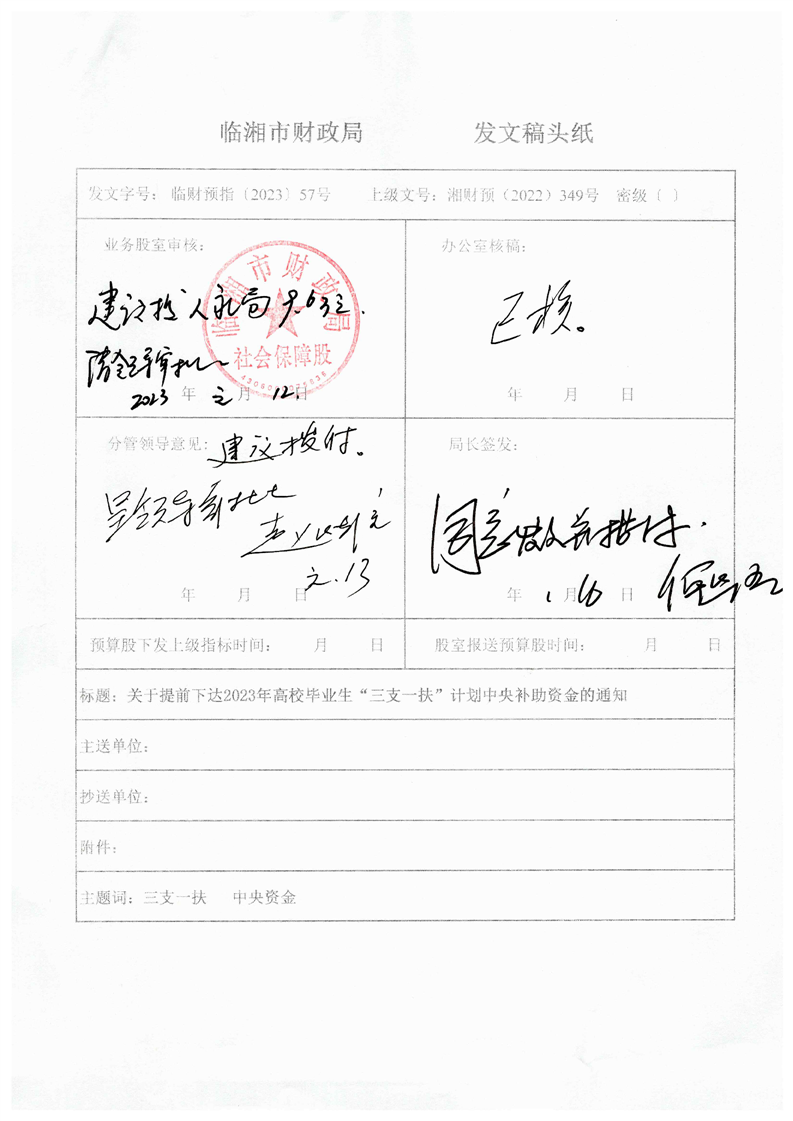 临湘市财政局 发文稿头纸
发文字号: 临财预指〔2023〕57号 上级文号: 湘财预(2022)349号 密级〔 〕
业务股室审核:
建议拨人社局9.63元.
请领导审批
2023 年 元 月 12 日
临湘市财政局
社会保障股
办公室核稿:
已核。
年 月 日
分管领导意见:
建议拨付。
呈领导审批
元.13
年 月 日
局长签发:
同意
拨付.
年 1 月 16 日
预算股下发上级指标时间: 月 日
股室报送预算股时间: 月 日
标题: 关于提前下达2023年高校毕业生“三支一扶”计划中央补助资金的通知
主送单位:
抄送单位:
附件:
主题词: 三支一扶 中央资金